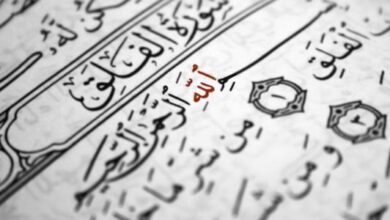 كُن لَّهُ
سُورَةُ الْفَلَقِ
اللَّهِ الرَّحْمَٰنِ الرَّحِيمِ
الْفَلَقِ ١ مِن شَرِّ مَا
٢ وَمِن